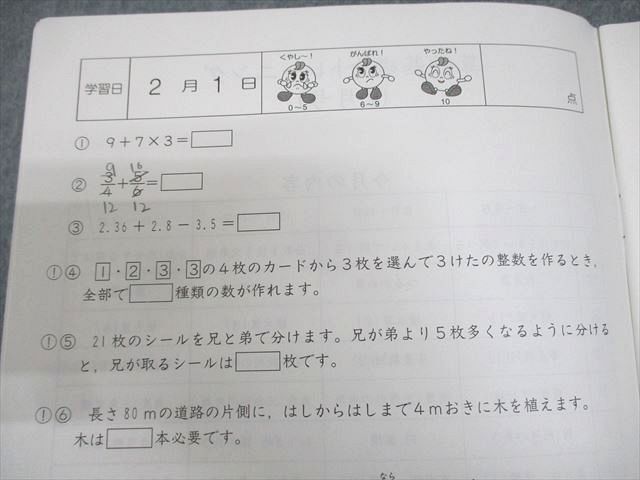 くやし~! がんばれ! やったね!
学習日 2月1日 点
0~5 6~9 10
① 9+7×3=
9 10
② 3/4+5/6=
12 12
③ 2.36+2.8-3.5=
!④ 1・2・3・3の4枚のカードから3枚を選んで3けたの整数を作るとき,
全部で 種類の数が作れます。
!⑤ 21枚のシールを兄と弟で分けます。兄が弟より5枚多くなるように分ける
と,兄が取るシールは 枚です。
!⑥ 長さ80mの道路の片側に,はしからはしまで4mおきに木を植えます。
木は 本必要です。
なら